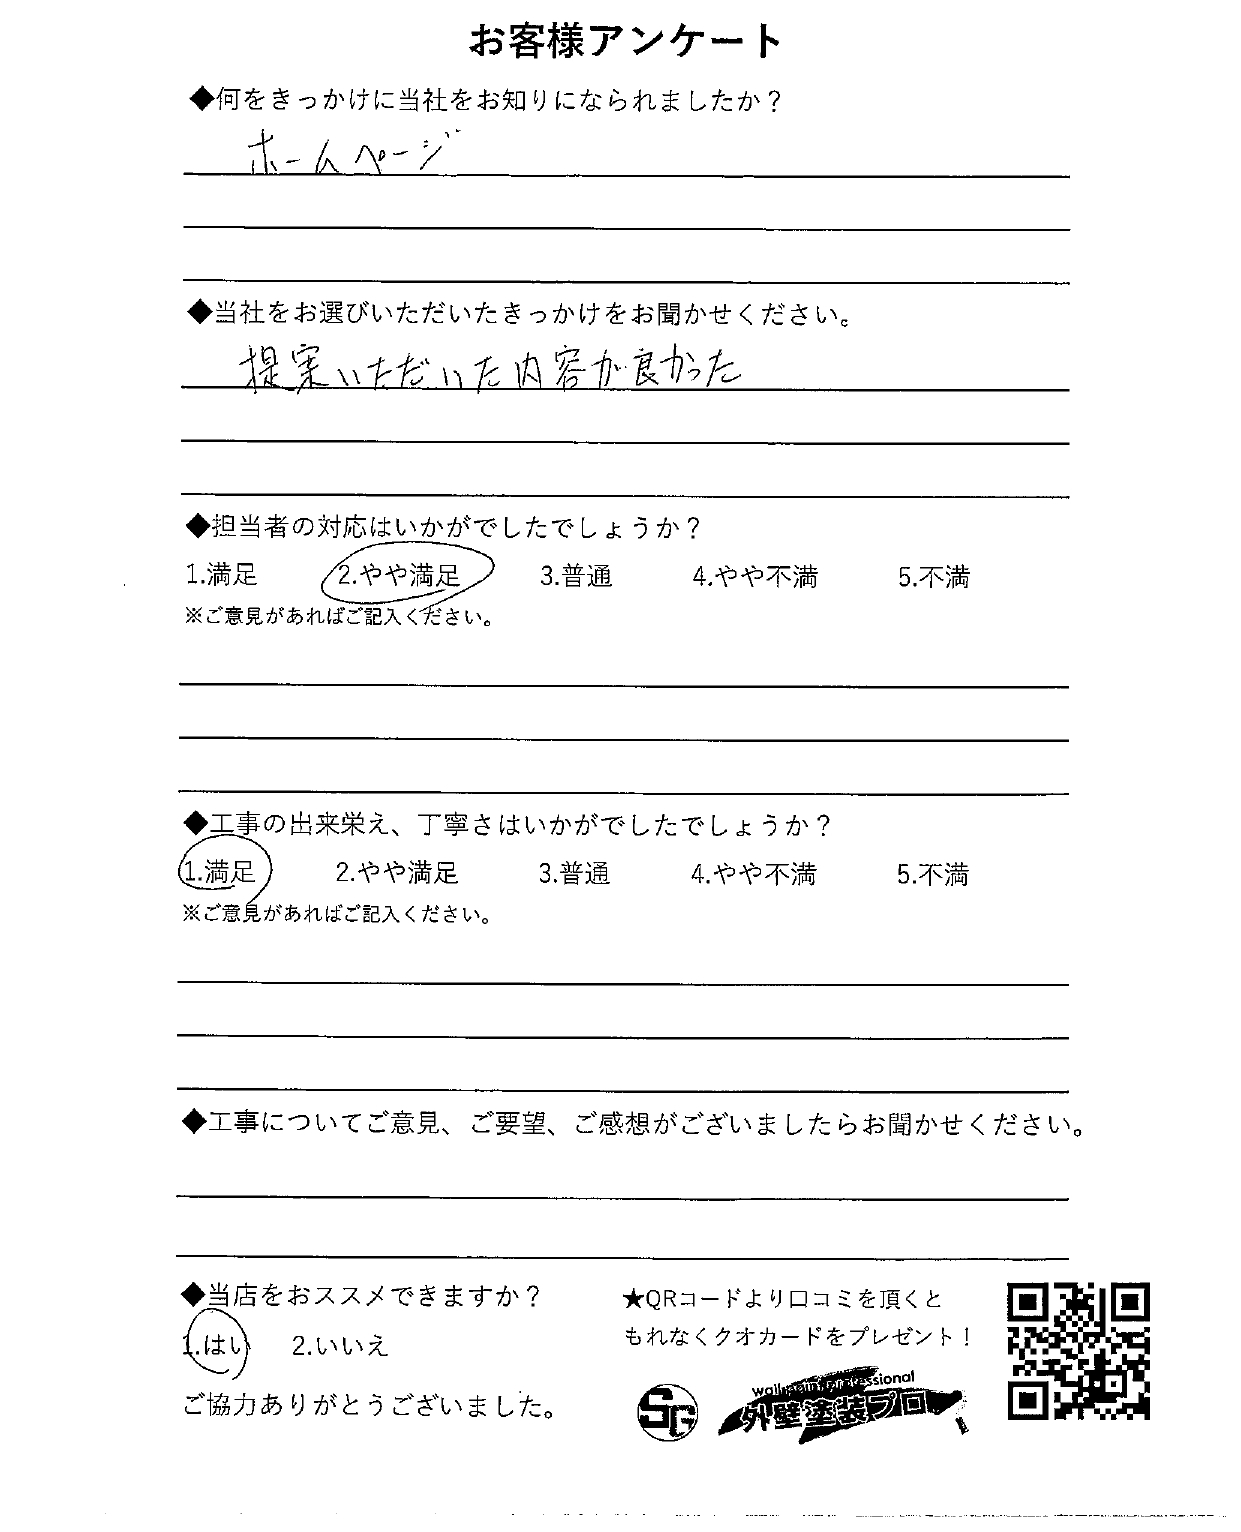 お客様アンケート
◆何をきっかけに当社をお知りになられましたか？
ホームページ
◆当社をお選びいただいたきっかけをお聞かせください。
提案いただいた内容が良かった
◆担当者の対応はいかがでしたでしょうか？
1.満足 2.やや満足 3.普通 4.やや不満 5.不満
※ご意見があればご記入ください。
◆工事の出来栄え、丁寧さはいかがでしたでしょうか？
1.満足 2.やや満足 3.普通 4.やや不満 5.不満
※ご意見があればご記入ください。
◆工事についてご意見、ご要望、ご感想がございましたらお聞かせください。
◆当店をおススメできますか？
1.はい 2.いいえ
ご協力ありがとうございました。
★QRコードより口コミを頂くと
もれなくクオカードをプレゼント！
SG
wall paint professional
外壁塗装プロ